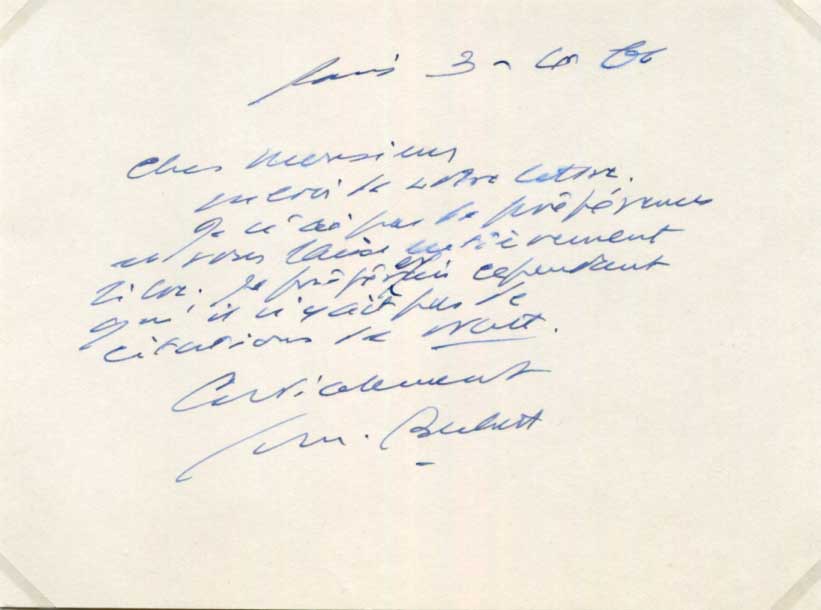 Paris 3-10 66
Cher Monsieur
merci de votre lettre.
Je n'ai pas de préférences
et vous laisse entièrement
libre. Je préférerais cependant
qu'il n'y ait pas de
citations de Watt.
Cordialement
Sam. Beckett